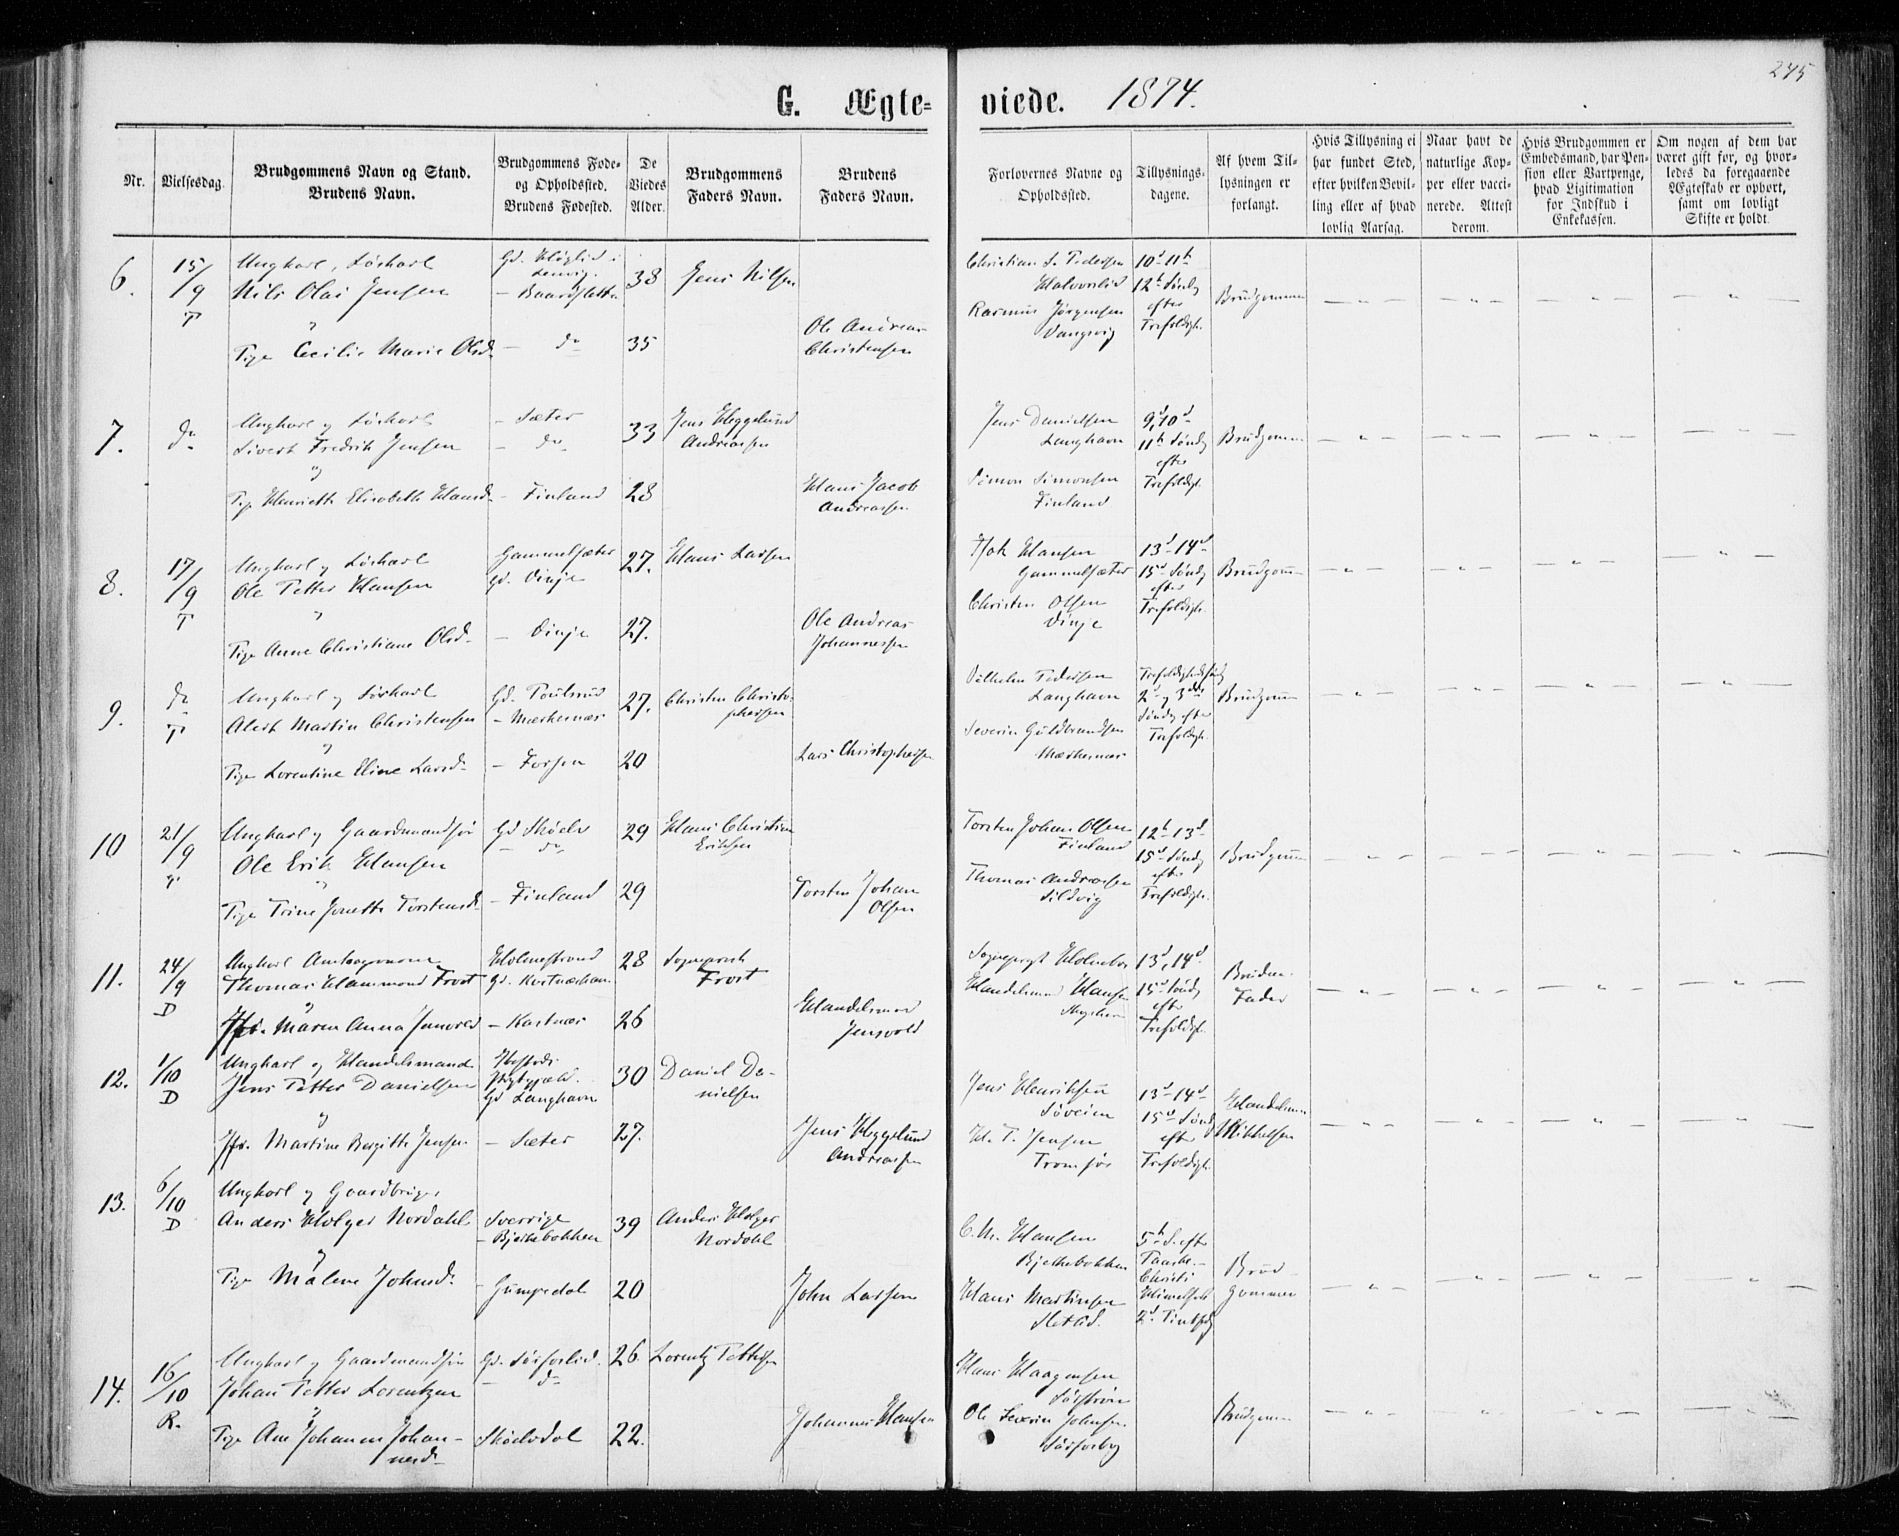 245
G. Ægte-
viede. 1874.
Nr.
Vielsesdag.
Brudgommens Navn og Stand.
Brudens Navn.
Brudgommens Føde-
og Opholdssted.
Brudens Fødested.
De
Viedes
Alder.
Brudgommens
Faders Navn.
Brudens
Faders Navn.
Forlovernes Navne og
Opholdssted.
Tillysnings-
dagene.
Af hvem Til-
lysningen er
forlangt.
Hvis Tillysning ei
har fundet Sted,
efter hvilken Bevil-
ling eller af hvad
lovlig Aarsag.
Naar havt de
naturlige Kop-
per eller vacci-
nerede. Attest
derom.
Hvis Brudgommen er
Embedsmand, har Pen-
sion eller Vartpenge,
hvad Ligitimation
for Indskud i
Enkekassen.
Om nogen af dem har
været gift før, og hvor-
ledes da foregaaende
Ægteskab er ophørt,
samt om lovligt
Skifte er holdt.
6.
15/9
T
Ungkarl, Løskarl
Nils Olai Jensen
Pige Cecilie Marie Olsd.
Gd.
- Baardsletta
- do
38
35
Jens Nilsen
Ole Andreas
Christensen
Christian S. Pedersen
Rasmus Jørgensen
Vangsvig
10d 11te
12te Sönd
efter
Trefoldigh.
Brudgommen
7.
do
Ungkarl og Løskarl
Sivert Fredrik Jensen
og
Pige Henriette Elisabeth Hansd.
- Sæter
- do
- Finland
33
28
Jens Heggelund
Andreassen
Hans Jacob
Andreassen
Jens Danielsen
Langhavn
Simon Simonsen
Finland
9d 10d
11te Sönd
efter
Trefoldigh.
Brudgommen
8.
17/9
T
Ungkarl og Løskarl
Ole Petter Hansen
Pige Anne Christiane Olsd.
Gammelsæter
Gd. Vinje
- Vinje
27.
27.
Hans Larsen
Ole Andreas
Johannessen
Joh Hansen
Gammelsæter
Christen Olsen
Vinje
13d 14d
15d Sönd
efter
Trefoldigh.
Brudgom
9.
do
T
Ungkarl og Løskarl
Alert Martin Christensen
og
Pige Lorentine Eline Larsd.
Gd.
- Mærkenæs
- Forsen
27.
20
Christen Christo-
phersen
Lars Christophersen
Vilhelm Pedersen
Langhavn
Severin Guldbrandsen
Mærkenæs
2d og 3die
Sönd efter
Trefoldigh.
Brudgom
10
21/9
T
Ungkarl og Gaardmandsøn
Ole Erik Hansen
Pige Trine Jonette Torstensd.
Gd Sköelv
- do
- Finland
29
29
Hans Christian
Eriksen
Torsten Johan
Olsen
Torsten Johan Olsen
Finland
Thomas Andreasen
Sildvig
12te 13d
15d Sönd
efter
Trefoldigh.
Brudgom
11.
24/9
D
Ungkarl
Thomas Hammond Frost
Jfr. Maren Anna Jensvold
Holmestrand
Gd.
- Kastnæs
28
26
Sogneprest
Frost
Handelsmand
Jensvold
Handelsmand Hansen
13d, 14d
15d Sönd
efter
Trefoldigh.
Brudens
Fader
12.
1/10
D
Ungkarl og Handelsmand
Jens Petter Danielsen
og
Jfr. Martine Bergitte Jensen
Gd Langhavn
- Sæter
30
27.
Daniel Da-
nielsen
Jens Heggelund
Andreassen
Jens Henriksen
Søveien
H. T. Jensen
Tromsø
13d 14d
15d Sönd
efter
Trefoldigh.
Handelsman
Mikkelsen
13.
6/10
D
Ungkarl og Gaardbruger
Anders Holger Nordahl
og
Pige Målene Johnsd.
Sverrige
- Bjerkebakken
- Gumpedal
39
20
Anders Holger
Nordahl
John Larsen
C. M. Hansen
Bjerkebakken
Hans Martinsen
5te S. efter
Paaske.-
Christi
Himmelf.
2d Pintsedg
Brud-
gommen
14.
16/10
R.
Ungkarl og Gaardmandsøn
Johan Petter Lorentzen
og
Pige Ane Johanna Johan-
nesd.
Gd. Sörforlid.
- do
Sköelvdal
26.
22.
Lorentz Pettersen
Johannes Hansen
Hans Haagensen
Ole Severin Johnsen
Brudgom